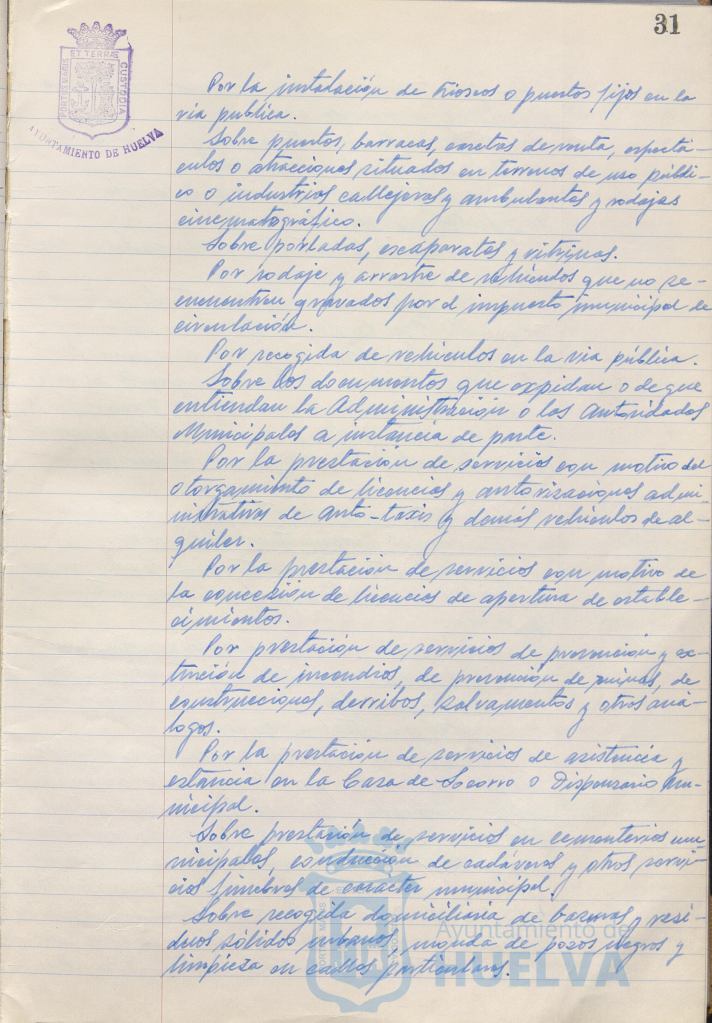 31
PORTUS MARIS ET TERRÆ CUSTODIA
AYUNTAMIENTO DE HUELVA
Por la instalación de Kioscos o puestos fijos en la
via publica.
Sobre puestos, barracas, casetas de venta, espectá-
culos o atracciones situados en terrenos de uso públi-
co o industrias callejeras y ambulantes y rodajes
cinematográfico.
Sobre portadas, escaparates y vitrinas.
Por rodaje y arrastre de vehículos que no se
encuentren gravados por el impuesto municipal de
circulación.
Por recogida de vehiculos en la via pública.
Sobre los documentos que expidan o de que
entiendan la Administración o las Autoridades
Municipales a instancia de parte.
Por la prestación de servicios con motivo del
otorgamiento de licencias y autorizaciones admi-
nistrativas de auto-taxis y demás vehiculos de al-
quiler.
Por la prestación de servicios con motivo de
la concesión de licencias de apertura de estable-
cimientos.
Por prestación de servicios de prevención y ex-
tinción de incendios, de prevención de ruinas, de
construcciones, derribos, salvamentos y otros aná-
logos.
Por la prestación de servicios de asistencia y
estancia en la Casa de Socorro o Dispensario Mu-
nicipal.
Sobre prestación de servicios en cementerios mu-
nicipales, conducción de cadáveres y otros servi-
cios fúnebres de carácter municipal.
Sobre recogida domiciliaria de basuras y resi-
duos sólidos urbanos, monda de pozos negros y
limpieza en calles particulares.
Ayuntamiento de
HUELVA